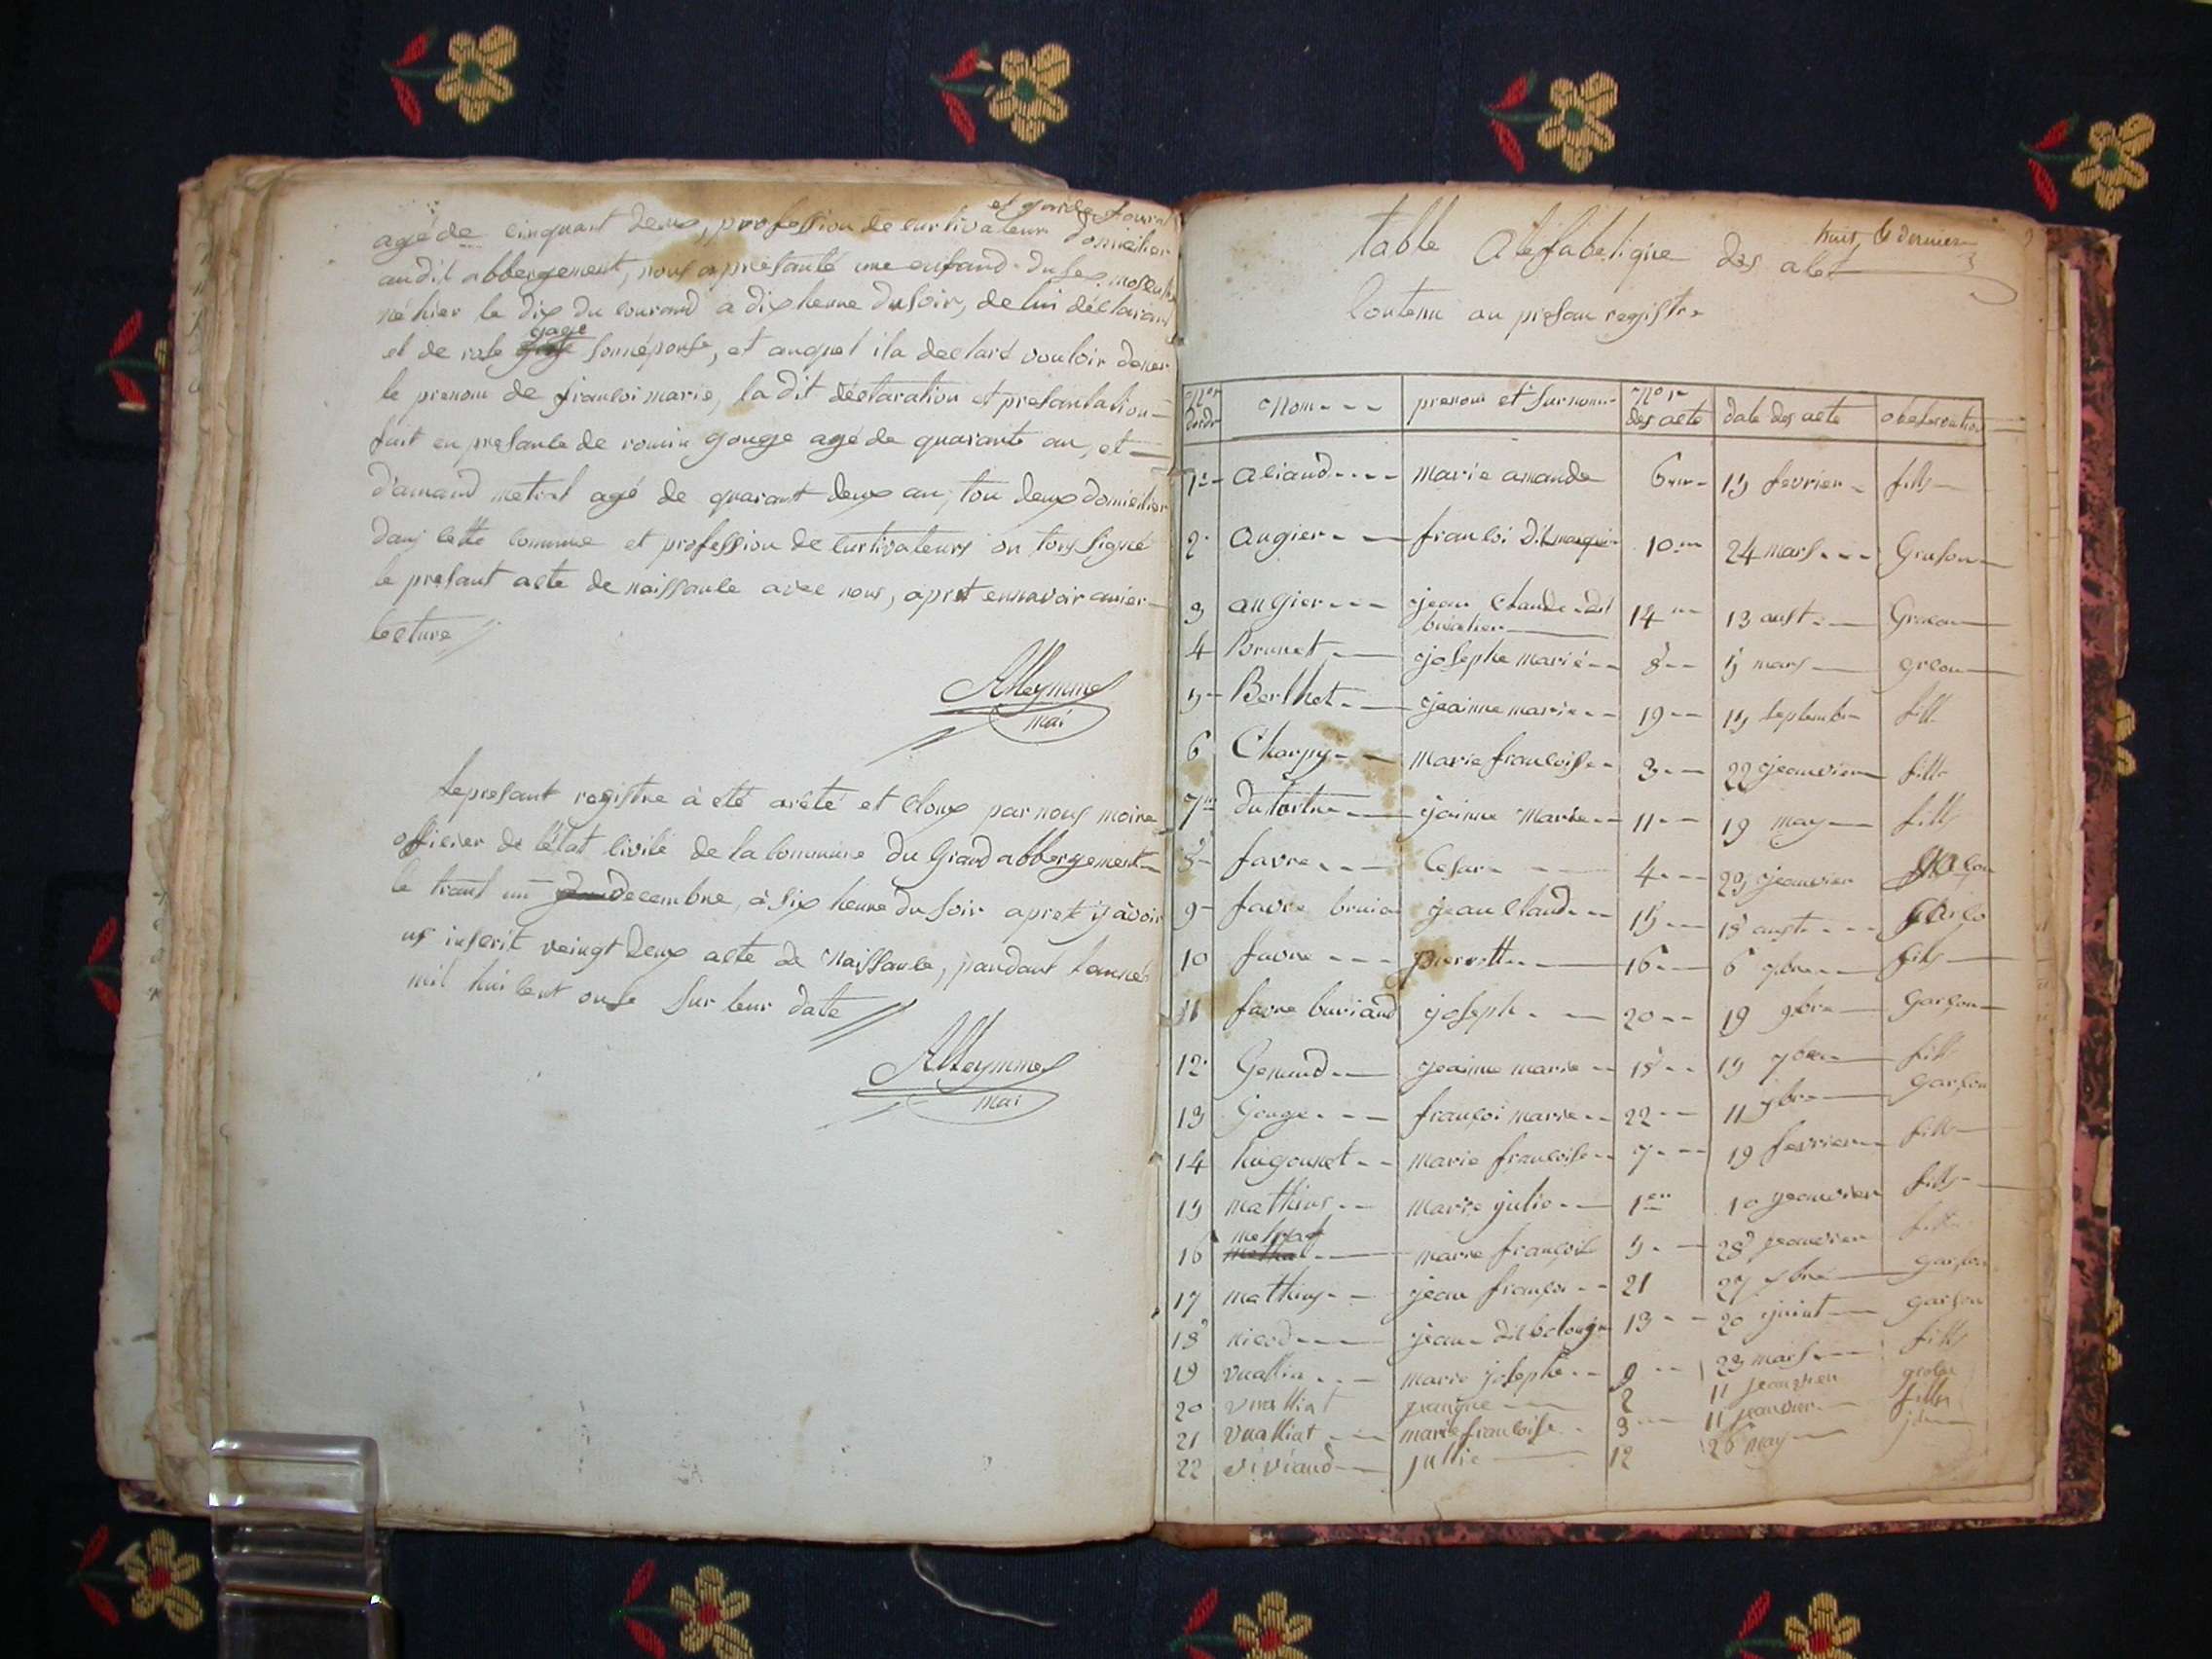 et garde forest
agé de cinquant deux, profession de curtivateur domicilier
audit abbergement, nous a presanté une enfand du sex mascul
né hier le dix du courand a dix heurre du soir, de lui déclarand
et de rose gage sonnépouse, et auquel il a declaré vouloir doner
le prenom de françoi marie, la dit déclaration et presantation
fait en presance de romin gouge agé de quarante an, et
d'amand metral agé de quarant deux an, tou deux domicilier
dans cette commune et profession de curtivateurs on tous signé
le presant acte de naissance avec nous, apret ennavoir
lecture
AlleymmeS
mai
Le presant registre à eté arété et cloux par nous moire
officier de l'état civile de la commune du Grand abbergement
le trant un decembre, à six heurre du soir apret y avoir
us inscrit veingt deux acte de Naissance, pandant l'année
mil huit cent onse sur leur date
AlleymmeS
mai
huit, & dernier
table Alefabetique des acte
Contenu au presan registre
Nos Dordr Nom prenom et surnom Nos des acte date des acte observation
1 aliand marie amande 6 15 fevrier fille
2 augier francoi dit 10 24 mars Grason
3 augier jean claude dit 14 13 aust Gracon
4 Brunet josephe marié 8 5 mars grcon
5 Berthet jeainne marie 19 15 septembre fille
6 Charpy marie francoise 3 22 jeanvier fille
7 dutartre jainne marie 11 19 may fille
8 favre Cesar 4 25 jeanvier
9 favre bruia jean Claude 15 18 aust
10 favre pierrette 16 6 7bre fille
11 favre buriand joseph 20 19 9bre Garçon
12 Genand jeainne marie 18 15 7bre fille
13 Gouge françoi marie 22 11 xbre Garçon
14 hugonnet marie francoise 7 19 fevrier fille
15 mathieus marie julie 1er 10 jeanvier fille
16 metral marie françoise 5 28 jeanvier fille
17 mathieus jean françoi 21 27 9bre garson
18 nicod jean dit bologne 13 20 juint garson
19 vuallia marie josephe 9 23 mars fille
20 vualliat 2 11 jeanvier
21 vualliat marie francoise 3 11 jeanvier fille
22 viviand jullie 12 26 may